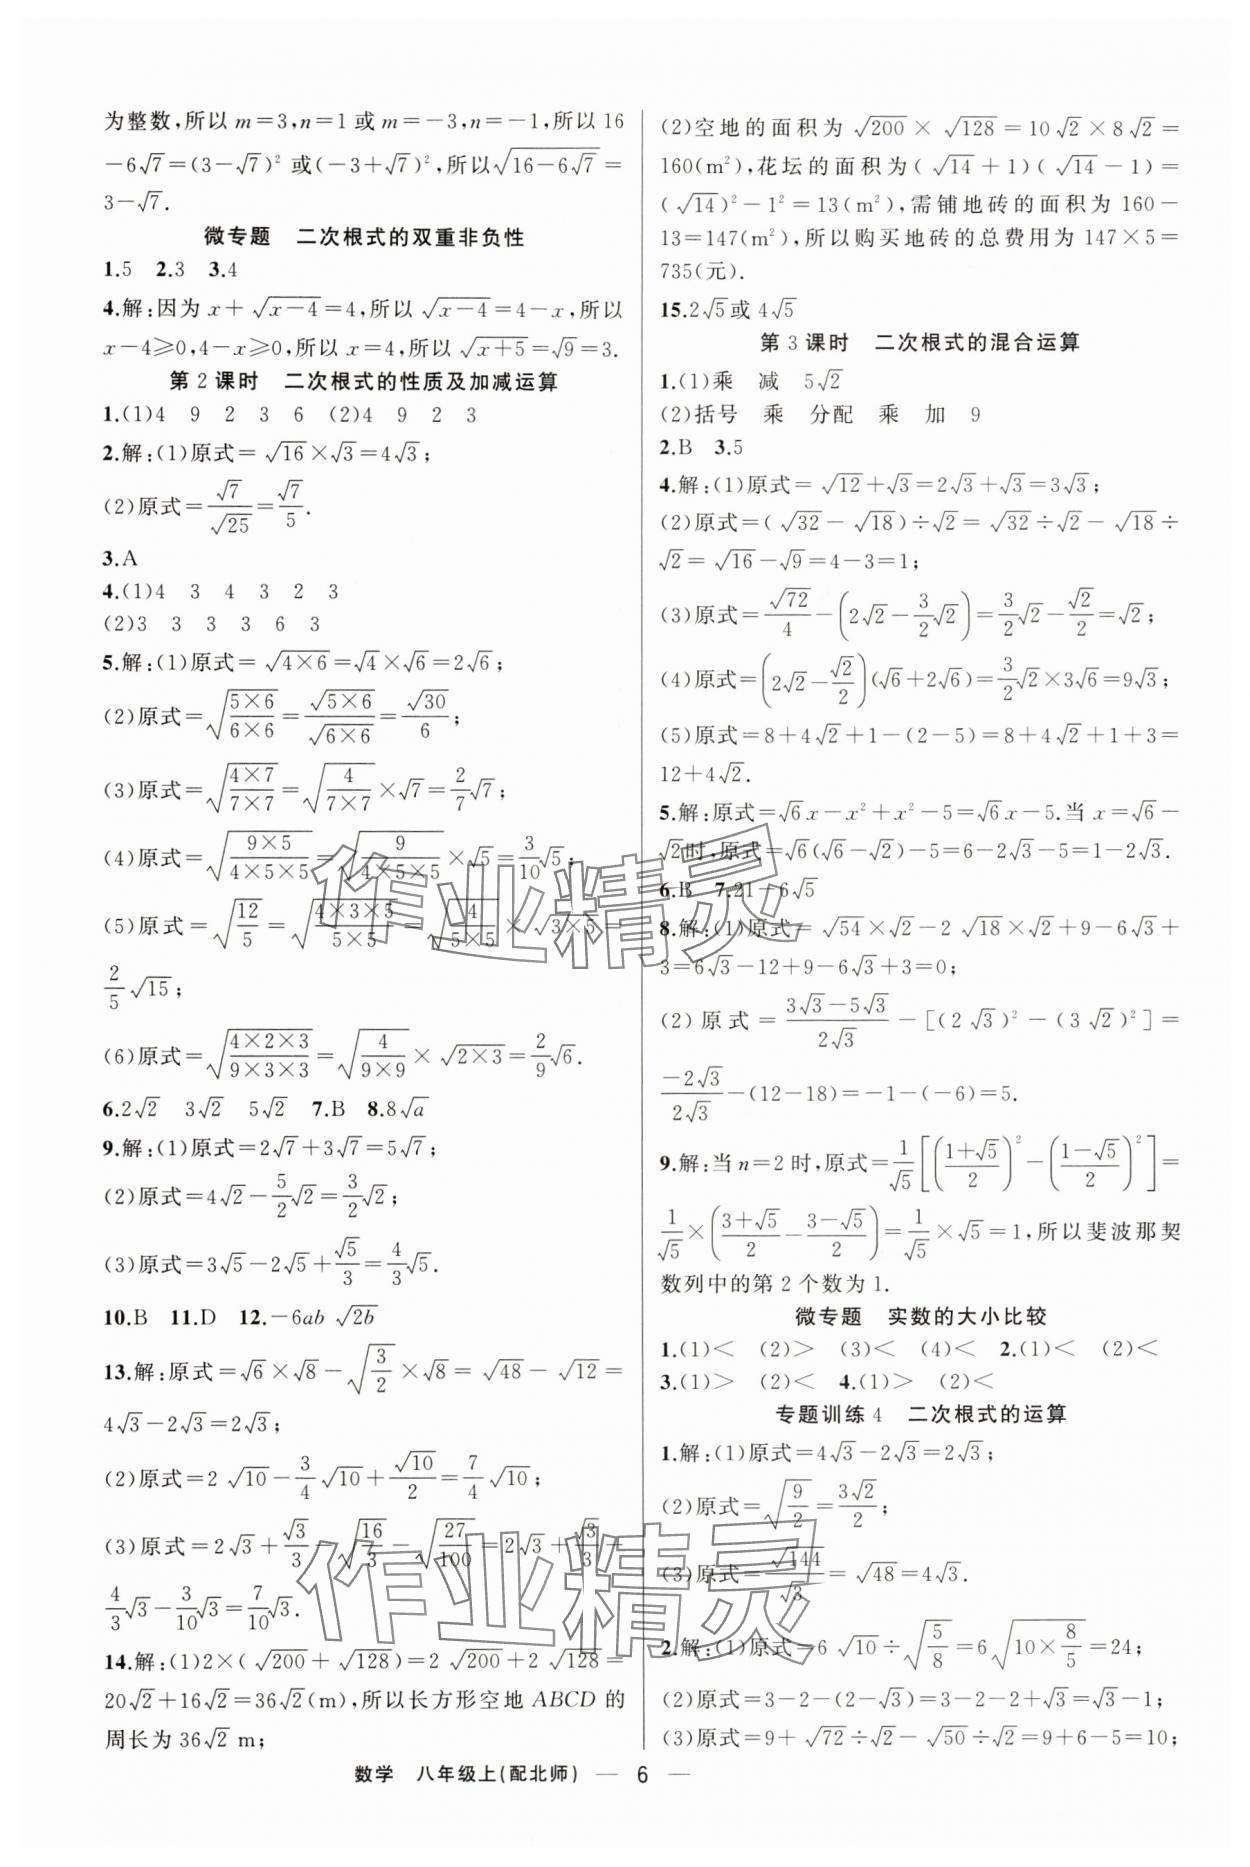 为整数,所以 m=3,n=1 或 m=-3,n=-1,所以 16
-6√7=(3-√7)² 或(-3+√7)²,所以√(16-6√7)=
3-√7.
微专题 二次根式的双重非负性
1.5 2.3 3.4
4.解:因为 x+√(x-4)=4,所以 √(x-4)=4-x,所以
x-4≥0,4-x≥0,所以 x=4,所以 √(x+5)=√9=3.
第 2 课时 二次根式的性质及加减运算
1.(1)4 9 2 3 6 (2)4 9 2 3
2.解:(1)原式=√16×√3=4√3;
(2)原式=√7/√25=√7/5.
3.A
4.(1)4 3 4 3 2 3
(2)3 3 3 3 6 3
5.解:(1)原式=√(4×6)=√4×√6=2√6;
(2)原式=√((5×6)/(6×6))=√(5×6)/√(6×6)=√30/6;
(3)原式=√((4×7)/(7×7))=√(4/(7×7))×√7=2/7√7;
(4)原式=√((9×5)/(4×5×5))=√(9/(4×5×5))×√5=3/10√5;
(5)原式=√(12/5)=√((4×3×5)/(5×5))=√(4/(5×5))×√(3×5)=
2/5√15;
(6)原式=√((4×2×3)/(9×3×3))=√(4/(9×9))×√(2×3)=2/9√6.
6.2√2 3√2 5√2 7.B 8.8√a
9.解:(1)原式=2√7+3√7=5√7;
(2)原式=4√2-5/2√2=3/2√2;
(3)原式=3√5-2√5+√5/3=4/3√5.
10.B 11.D 12.-6ab√(2b)
13.解:原式=√6×√8-√(3/2)×√8=√48-√12=
4√3-2√3=2√3;
(2)原式=2√10-3/4√10+√10/2=7/4√10;
(3)原式=2√3+√3/3-√(16/3)-√(27/100)=2√3+√3/3-
4/3√3-3/10√3=7/10√3.
14.解:(1)2×(√200+√128)=2√200+2√128=
20√2+16√2=36√2(m),所以长方形空地 ABCD 的
周长为 36√2 m;
(2)空地的面积为 √200×√128=10√2×8√2=
160(m²),花坛的面积为(√14+1)(√14-1)=
(√14)²-1²=13(m²),需铺地砖的面积为 160-
13=147(m²),所以购买地砖的总费用为 147×5=
735(元).
15.2√5或 4√5
第 3 课时 二次根式的混合运算
1.(1)乘 减 5√2
(2)括号 乘 分配 乘 加 9
2.B 3.5
4.解:(1)原式=√12+√3=2√3+√3=3√3;
(2)原式=(√32-√18)÷√2=√32÷√2-√18÷
√2=√16-√9=4-3=1;
(3)原式=√72/4-(2√2-3/2√2)=3/2√2-√2/2=√2;
(4)原式=(2√2-√2/2)(√6+2√6)=3/2√2×3√6=9√3;
(5)原式=8+4√2+1-(2-5)=8+4√2+1+3=
12+4√2.
5.解:原式=√6x-x²+x²-5=√6x-5.当 x=√6-
√2时,原式=√6(√6-√2)-5=6-2√3-5=1-2√3.
6.B 7.21-6√5
8.解:(1)原式=√54×√2-2√18×√2+9-6√3+
3=6√3-12+9-6√3+3=0;
(2)原式=(3√3-5√3)/(2√3)-[(2√3)²-(3√2)²]=
-2√3/2√3-(12-18)=-1-(-6)=5.
9.解:当 n=2 时,原式=1/√5[((1+√5)/2)²-((1-√5)/2)²]=
1/√5×((3+√5)/2-(3-√5)/2)=1/√5×√5=1,所以斐波那契
数列中的第 2 个数为 1.
微专题 实数的大小比较
1.(1)< (2)> (3)< (4)< 2.(1)< (2)<
3.(1)> (2)< 4.(1)> (2)<
专题训练 4 二次根式的运算
1.解:(1)原式=4√3-2√3=2√3;
(2)原式=√(9/2)=3√2/2;
(3)原式=√144/√3=√48=4√3.
2.解:(1)原式=6√10÷√(5/8)=6√(10×8/5)=24;
(2)原式=3-2-(2-√3)=3-2-2+√3=√3-1;
(3)原式=9+√72÷√2-√50÷√2=9+6-5=10;
数学 八年级上(配北师) — 6 —
作业精灵
作业精灵